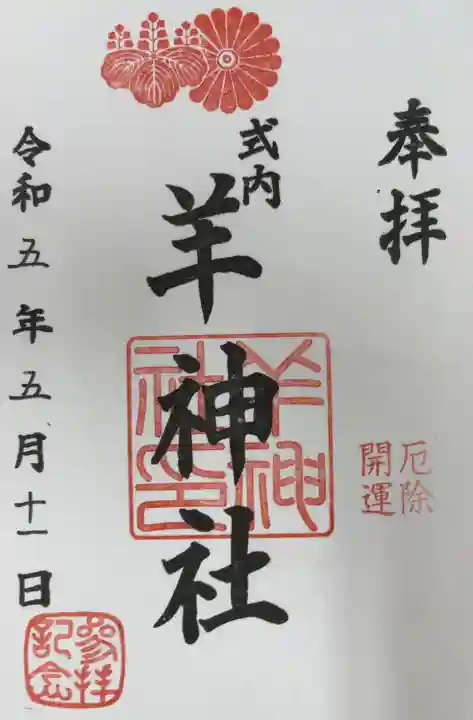 奉拝
厄除
開運
式内
羊神社
羊神
社印
令和五年五月十一日
参拝
記念